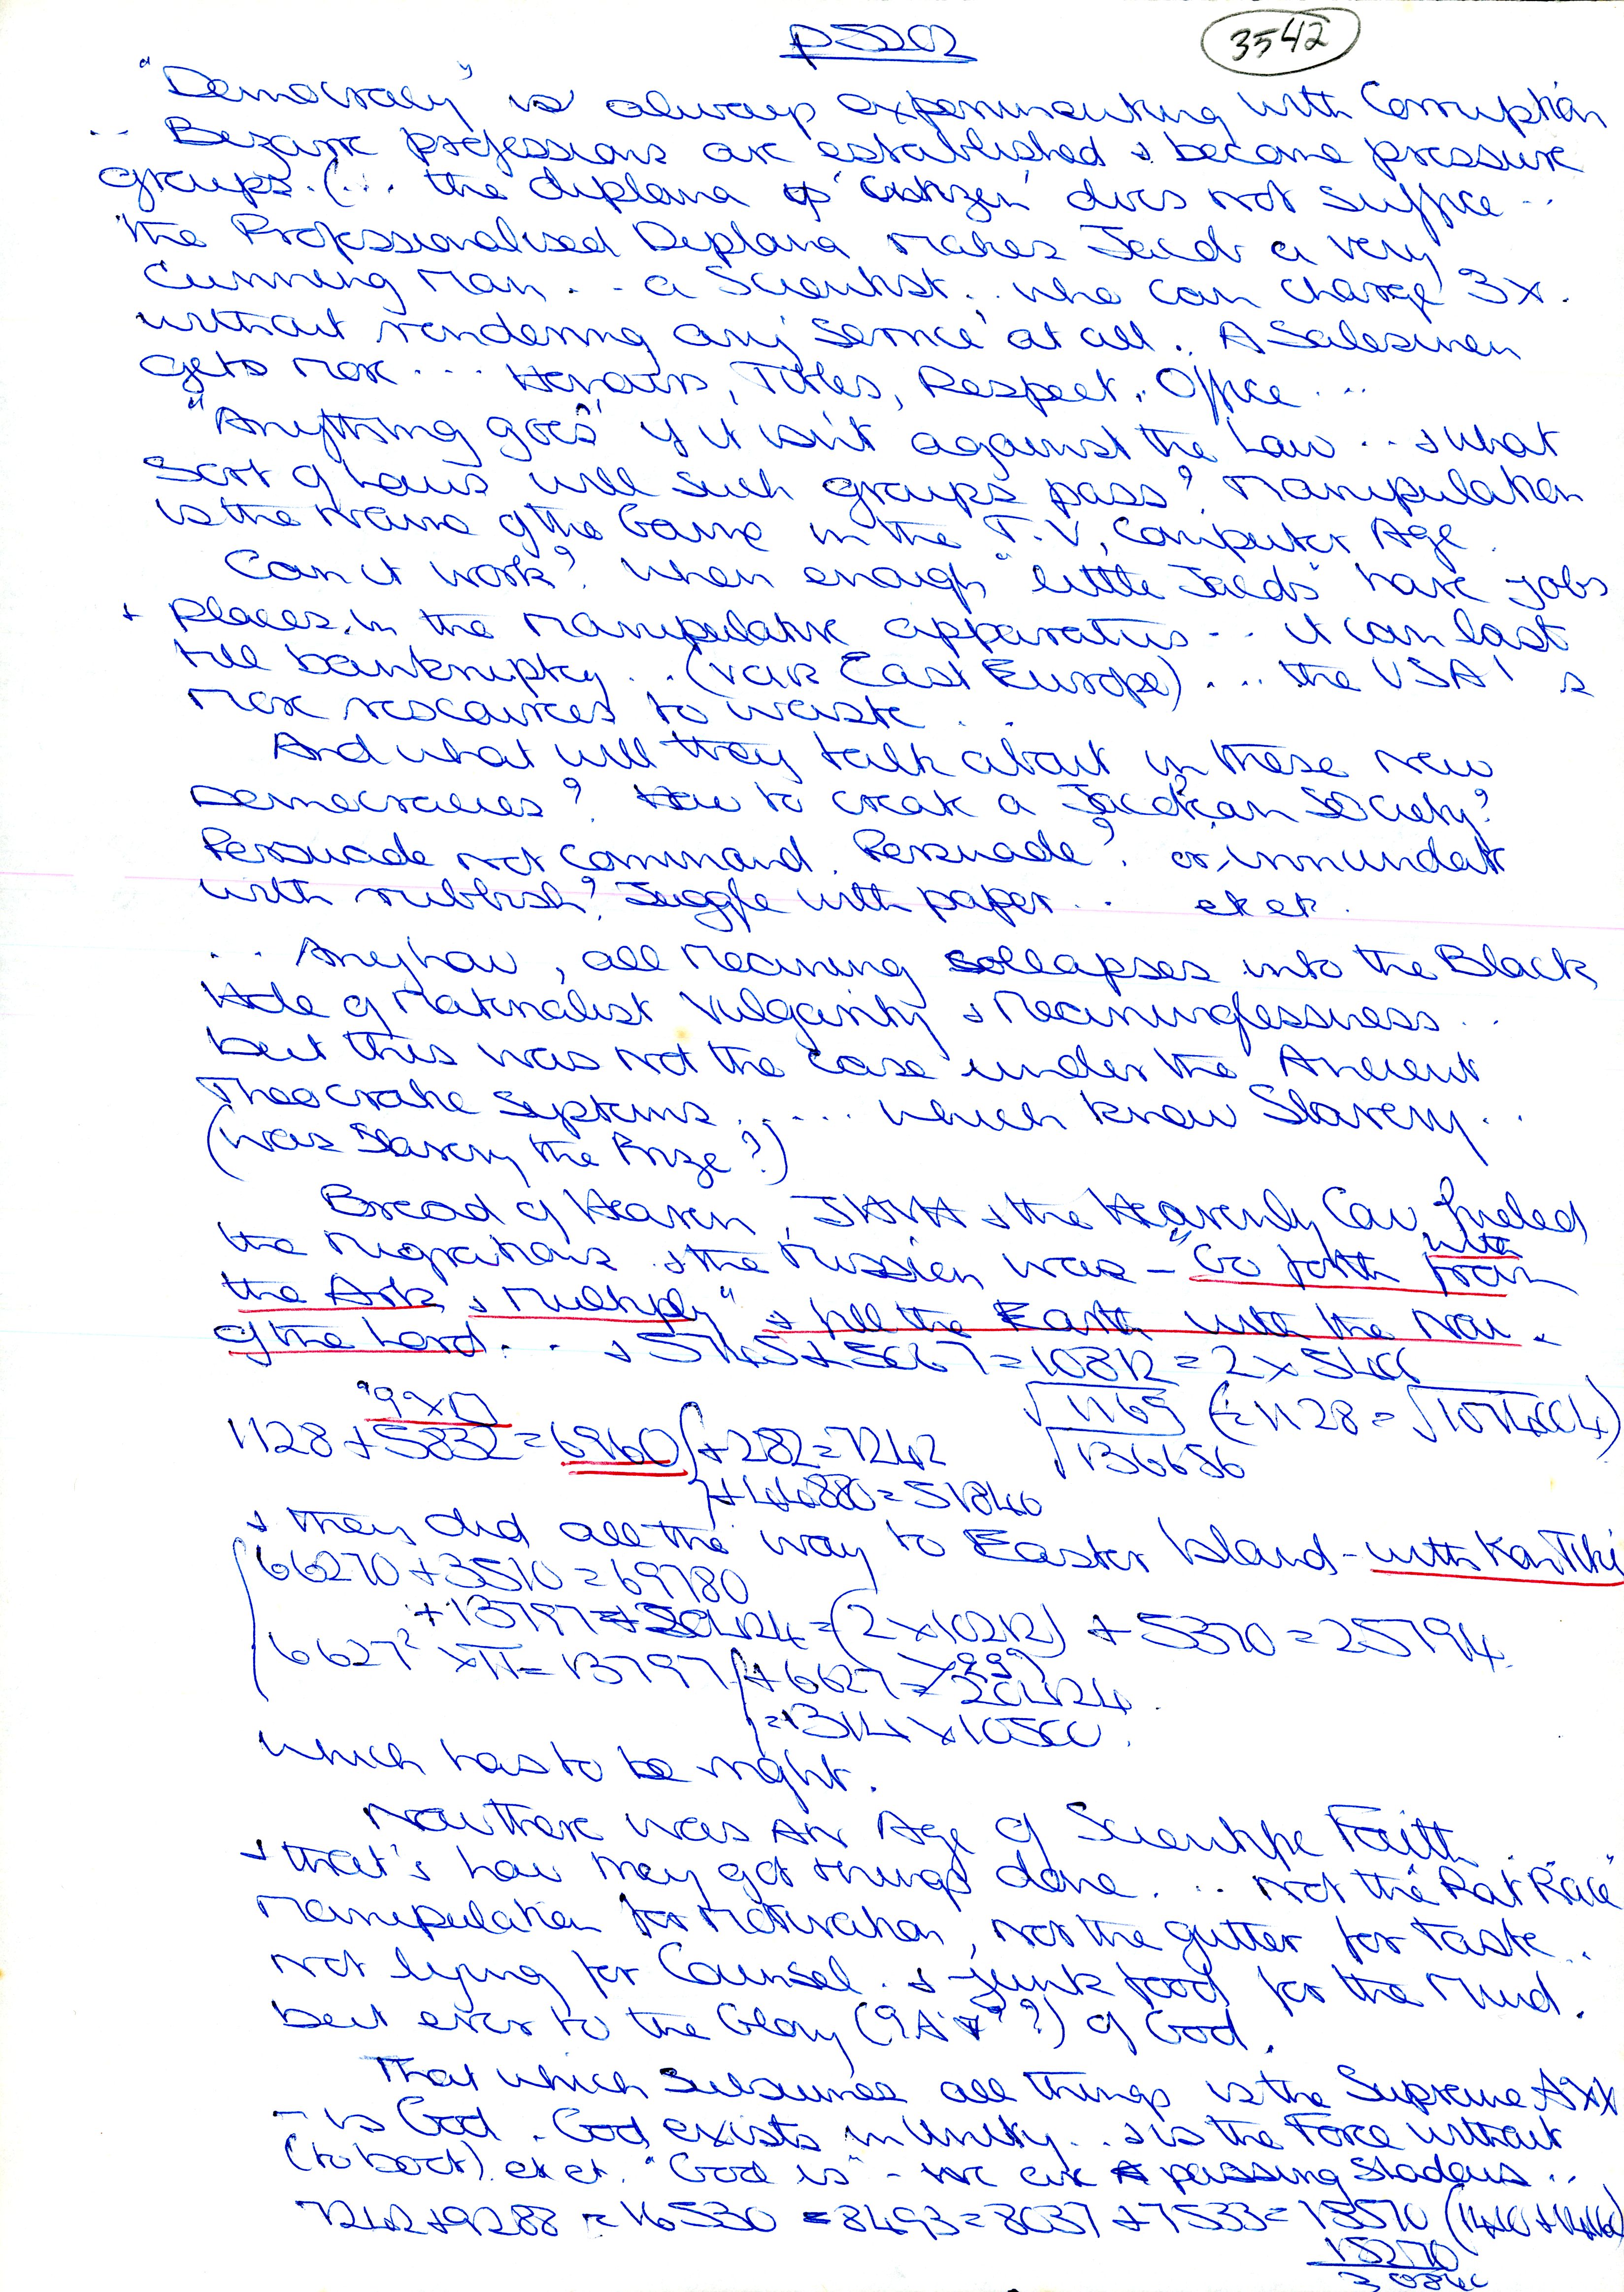 p5202
3542
"Democracy" is always experimenting with Corruption
.. Bezarre professions are established & become pressure
groups. (... the diploma of 'Citizen' does not suffice ..
the Professionalised Diploma makes Jacob a very
Cunning Man... a Scientist.. who can charge 3x.
without rendering any 'Service' at all. A Salesman
gets more .... Honours, Titles, Respect, Office ...
"Anything goes" if it isn't against the Law ... & what
sort of Laws will such groups pass? Manipulation
is the name of the Game in the T.V, Computer Age.
Can it work? When enough "little Jacobs" have jobs
& places in the Manipulative apparatus ... it can last
till bankruptcy ... (East Europe) .... the USA
more resources to waste ...
And what will they talk about in these new
Democracies? How to create a Society?
Persuade not command. Persuade? or, innundate
with rubbish? Juggle with paper... et et.
.. Anyhow, all Meaning collapses into the Black
Hole of Materialist Vulgarity & Meaninglessness ..
but this was not the case under the Ancient
Theocratic Systems ..... which knew Slavery..
(was Slavery the Prize?)
Bread of Heaven, JHVH & the Heavenly Cow fueled
the Migrations & the Mission was - "Go forth from
with
the Ark & Multiply" & fill the Earth with the
of the Lord ... & 5745 + 5067 = 10812 = 2 x 5406
9 x
1128 + 5832 = 6960 + 282 = 7242
+ 44880 = 51840
√1169
√136656
& they did all the way to Easter Island - with KonTiki
66270 + 3510 = 69780
+ 13797 = 20424 = (2 x 10212) + 5370 = 25794
6627² x π = 13797 + 6627 = 20424
= 1314 x 10500.
which has to be right.
Now there was AN Age of Scientific Faith ...
& that's how they got things done ... not the "Rat Race"
Manipulation for Motivation, not the gutter for taste..
not lying for Counsel. & junk food for the Mind.
but ever to the Glory of God.
That which Subsumes all things is the Supreme
- is God. God exists in Unity... & is the Force without
(to boot). et et. "God is" - we are passing Shadows ..
7242 + 9288 = 16530 = 8493 = 8037 + 7533 = 15570
15270